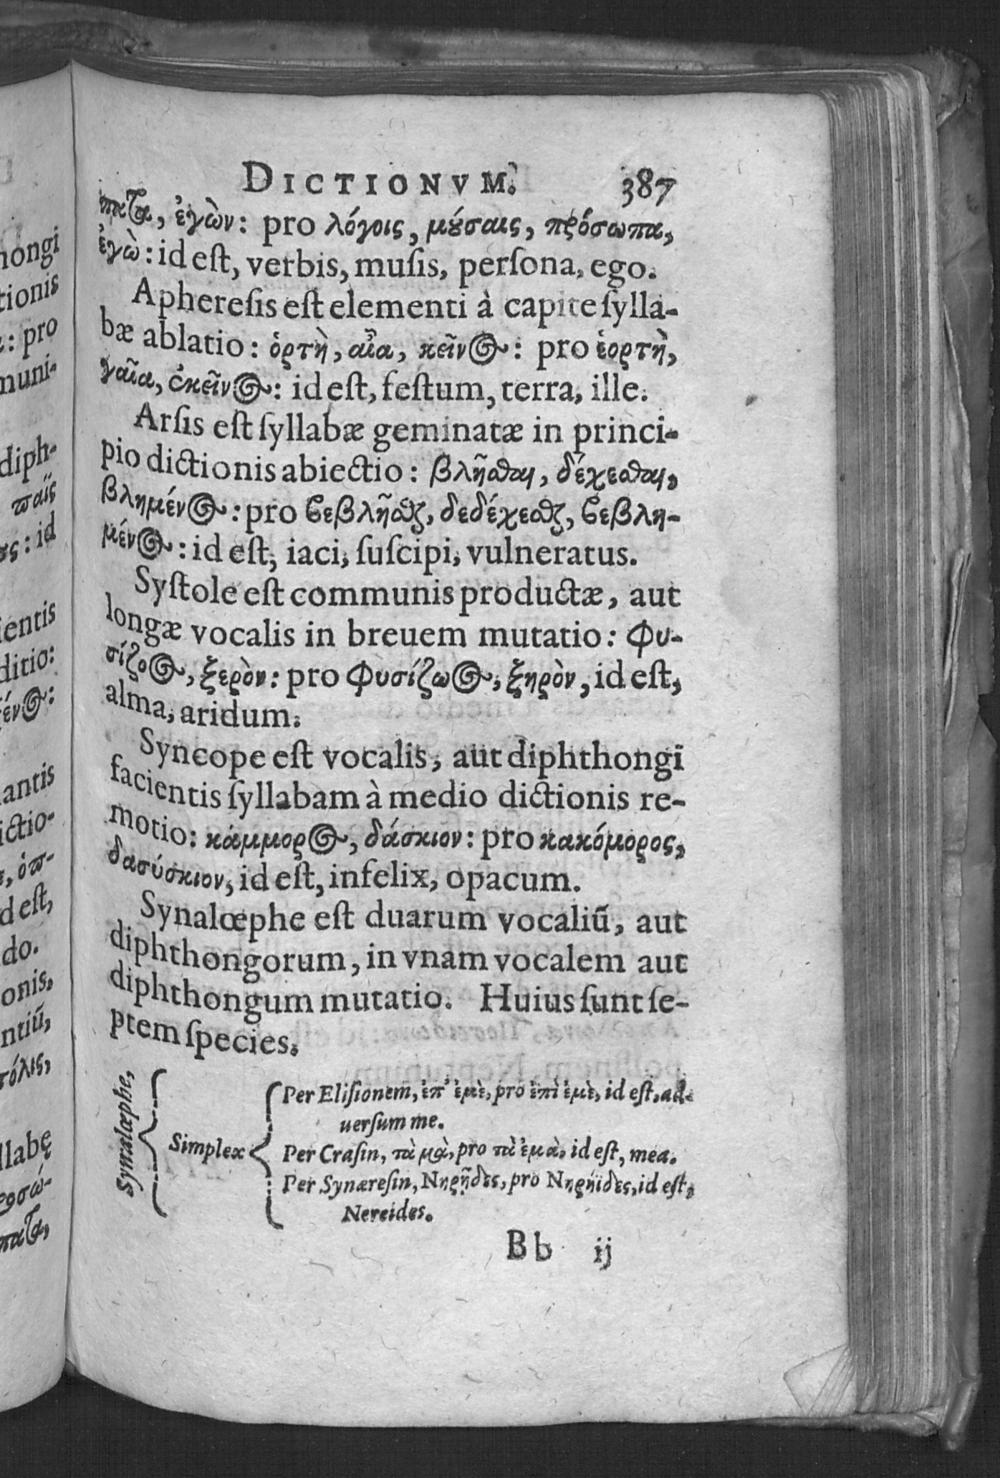 DICTIONVM. 387
πατα, ἐγὼν: pro λόγοις, μύσαις, πρόσωπα,
ἐγὼ: id est, verbis, musis, persona, ego.
Apheresis est elementi à capite sylla-
bæ ablatio: ὁρτὴ, αἶα, κεῖνος: pro ἑορτὴ,
γαῖα, ἐκεῖνος: id est, festum, terra, ille.
Arsis est syllabæ geminatæ in princi-
pio dictionis abiectio: βλῆσθαι, δέχεσθαι,
βλημένος: pro βεβλῆσθαι, δεδέχεσθαι, βεβλη-
μένος: id est, iaci, suscipi, vulneratus.
Systole est communis productæ, aut
longæ vocalis in breuem mutatio: Φυ-
σίζοος, ξερὸν: pro Φυσίζωος, ξηρὸν, id est,
alma, aridum.
Syncope est vocalis, aut diphthongi
facientis syllabam à medio dictionis re-
motio: κάμμορος, δάσκιον: pro κακόμορος,
δασύσκιον, id est, infelix, opacum.
Synalœphe est duarum vocaliũ, aut
diphthongorum, in vnam vocalem aut
diphthongum mutatio. Huius sunt se-
ptem species.
Synalœphe,
Simplex
Per Elisionem, ἐπ' ἐμὲ, pro ἐπὶ ἐμὲ, id est, ad-
uersum me.
Per Crasin, τὰ μὰ, pro τὰ ἐμὰ, id est, mea.
Per Synæresin, Νηρῇδες, pro Νηρήϊδες, id est,
Nereides.
Bb ij
hongi
tionis
: pro
muni-
diph-
παῖς
: id
ientis
ditio:
antis
ictio-
d est,
do.
onis,
ntiũ,
πόλις,
llabę
ροσώ-
πατα,